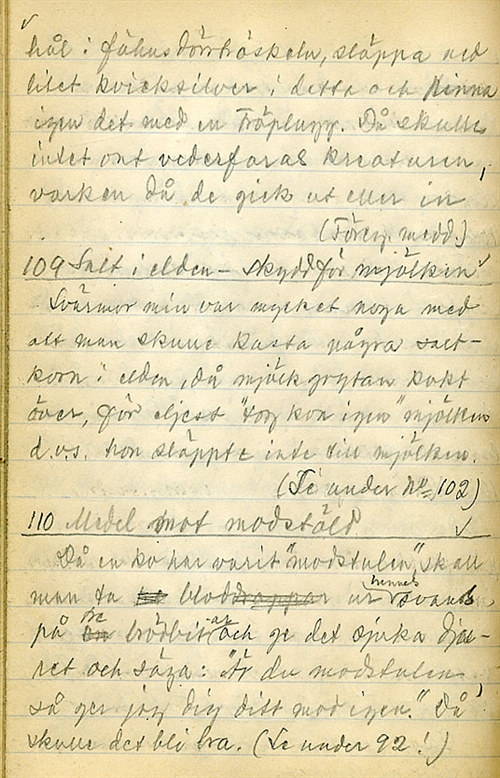 hål i fähusdörrtröskeln, släppa ned
litet kvicksilver i detta och pinna
igen det med en träplugg. Då skulle
intet ont vederfaras kreaturen,
varken då de gick ut eller in
(Föreg. medd.)
109 Salt i elden – skydd för mjölken
Svärmor min var mycket noga med
att man skulle kasta några salt-
korn i elden, då mjölkgrytan kokt
över, för eljest "tog kon igen" mjölken
d.v.s. hon släppte inte till mjölken.
(Se under No 102)
110 Medel mot modstöld
Då en ko har varit "modstulen", skall
man ta blod ur hennes svans
på tre brödbitar och ge det sjuka dju-
ret och säga: "Är du modstulen
så ger jag dig ditt mod igen." Då
skulle det bli bra. (Se under 92!)